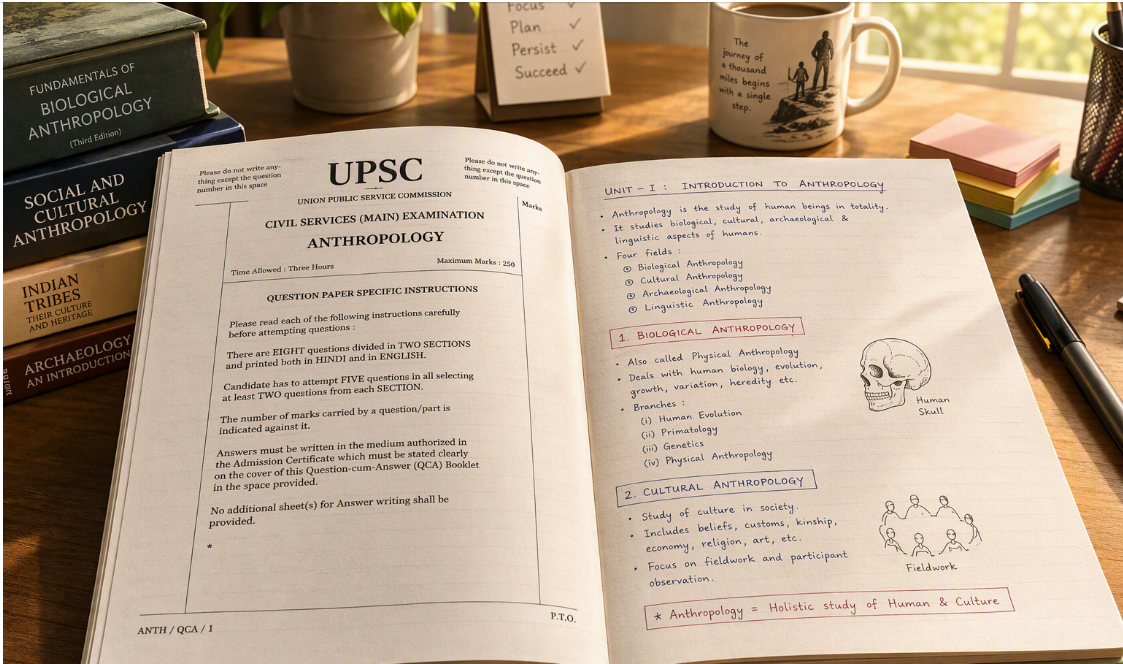 FUNDAMENTALS OF
BIOLOGICAL
ANTHROPOLOGY
(Third Edition)
SOCIAL AND
CULTURAL
ANTHROPOLOGY
INDIAN
TRIBES
THEIR CULTURE
AND HERITAGE
ARCHAEOLOGY
AN INTRODUCTION
Focus ✓
Plan ✓
Persist ✓
Succeed ✓
The
journey of
a thousand
miles begins
with a single
step.
Please do not write any-
thing except the question
number in this space
UPSC
Please do not write any-
thing except the question
number in this space
UNION PUBLIC SERVICE COMMISSION
Marks
CIVIL SERVICES (MAIN) EXAMINATION
ANTHROPOLOGY
Time Allowed : Three Hours
Maximum Marks : 250
QUESTION PAPER SPECIFIC INSTRUCTIONS
Please read each of the following instructions carefully
before attempting questions :
There are EIGHT questions divided in TWO SECTIONS
and printed both in HINDI and in ENGLISH.
Candidate has to attempt FIVE questions in all selecting
at least TWO questions from each SECTION.
The number of marks carried by a question/part is
indicated against it.
Answers must be written in the medium authorized in
the Admission Certificate which must be stated clearly
on the cover of this Question-cum-Answer (QCA) Booklet
in the space provided.
No additional sheet(s) for Answer writing shall be
provided.
*
ANTH / QCA / 1
P.T.O.
UNIT - I : INTRODUCTION TO ANTHROPOLOGY
• Anthropology is the study of human beings in totality.
• It studies biological, cultural, archaeological &
linguistic aspects of humans.
• Four fields :
Biological Anthropology
Cultural Anthropology
Archaeological Anthropology
Linguistic Anthropology
1. BIOLOGICAL ANTHROPOLOGY
• Also called Physical Anthropology
• Deals with human biology, evolution,
growth, variation, heredity etc.
• Branches :
(i) Human Evolution
(ii) Primatology
(iii) Genetics
(iv) Physical Anthropology
Human
Skull
2. CULTURAL ANTHROPOLOGY
• Study of culture in society.
• Includes beliefs, customs, kinship,
economy, religion, art, etc.
• Focus on fieldwork and participant
observation.
Fieldwork
* Anthropology = Holistic study of Human & Culture